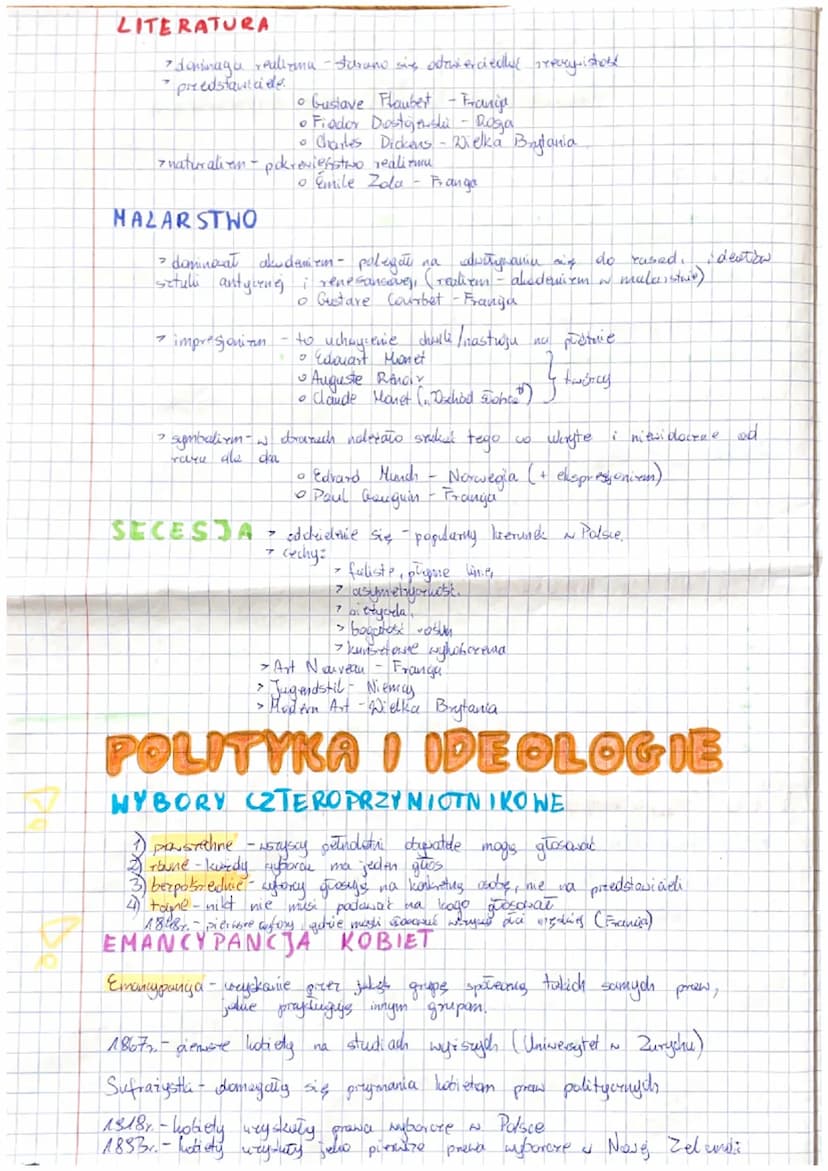 LITERATURA
> dominacja realizmu - starano się odzwierciedlić rzeczywistość
> przedstawiciele:
o Gustave Flaubert - Francja
o Fiodor Dostojewski - Rosja
o Charles Dickens - Wielka Brytania
> naturalizm - pokrewieństwo realizmu
o Émile Zola - Francja
MALARSTWO
> dominował akademizm - polegał na odwoływaniu się do zasad, ideałów
sztuki antycznej i renesansowej (realizm - akademizm w malarstwie)
o Gustave Courbet - Francja
> impresjonizm - to uchwycenie chwili/nastroju na płótnie
o Edouart Manet
o Auguste Renoir
o Claude Monet („Wschód słońca") } twórcy
> symbolizm - w obrazach należało szukać tego co ukryte i niewidoczne od
razu dla oka
o Edvard Munch - Norwegia (+ ekspresjonizm)
o Paul Gauguin - Francja
SECESJA > oddzielenie się - popularny kierunek w Polsce.
> cechy:
> faliste, płynne linie,
> asymetryczność.
> bogatość roślin
> Art Nouveau - Francja
> Jugendstil - Niemcy
> Modern Art - Wielka Brytania
POLITYKA I IDEOLOGIE
WYBORY CZTEROPRZYMIOTNIKOWE
1) powszechne - wszyscy pełnoletni obywatele mogą głosować
2) równe - każdy wyborca ma jeden głos
3) bezpośrednie - wyborcy głosują na konkretną osobę, nie na przedstawicieli
4) tajne - nikt nie musi podawać na kogo głosował
1848r. - pierwsze wybory, gdzie mogli głosować wszyscy płci męskiej (Francja)
EMANCYPANCJA KOBIET
Emancypancja - uzyskanie przez jakąś grupę społeczną takich samych praw,
jakie przysługują innym grupom.
1867r. - pierwsze kobiety na studiach wyższych (Uniwersytet w Zurychu)
Sufrażystki - domagały się przyznania kobietom praw politycznych
1918r. - kobiety uzyskały prawa wyborcze w Polsce
1893r. - kobiety uzyskały jako pierwsze prawa wyborcze w Nowej Zelandii